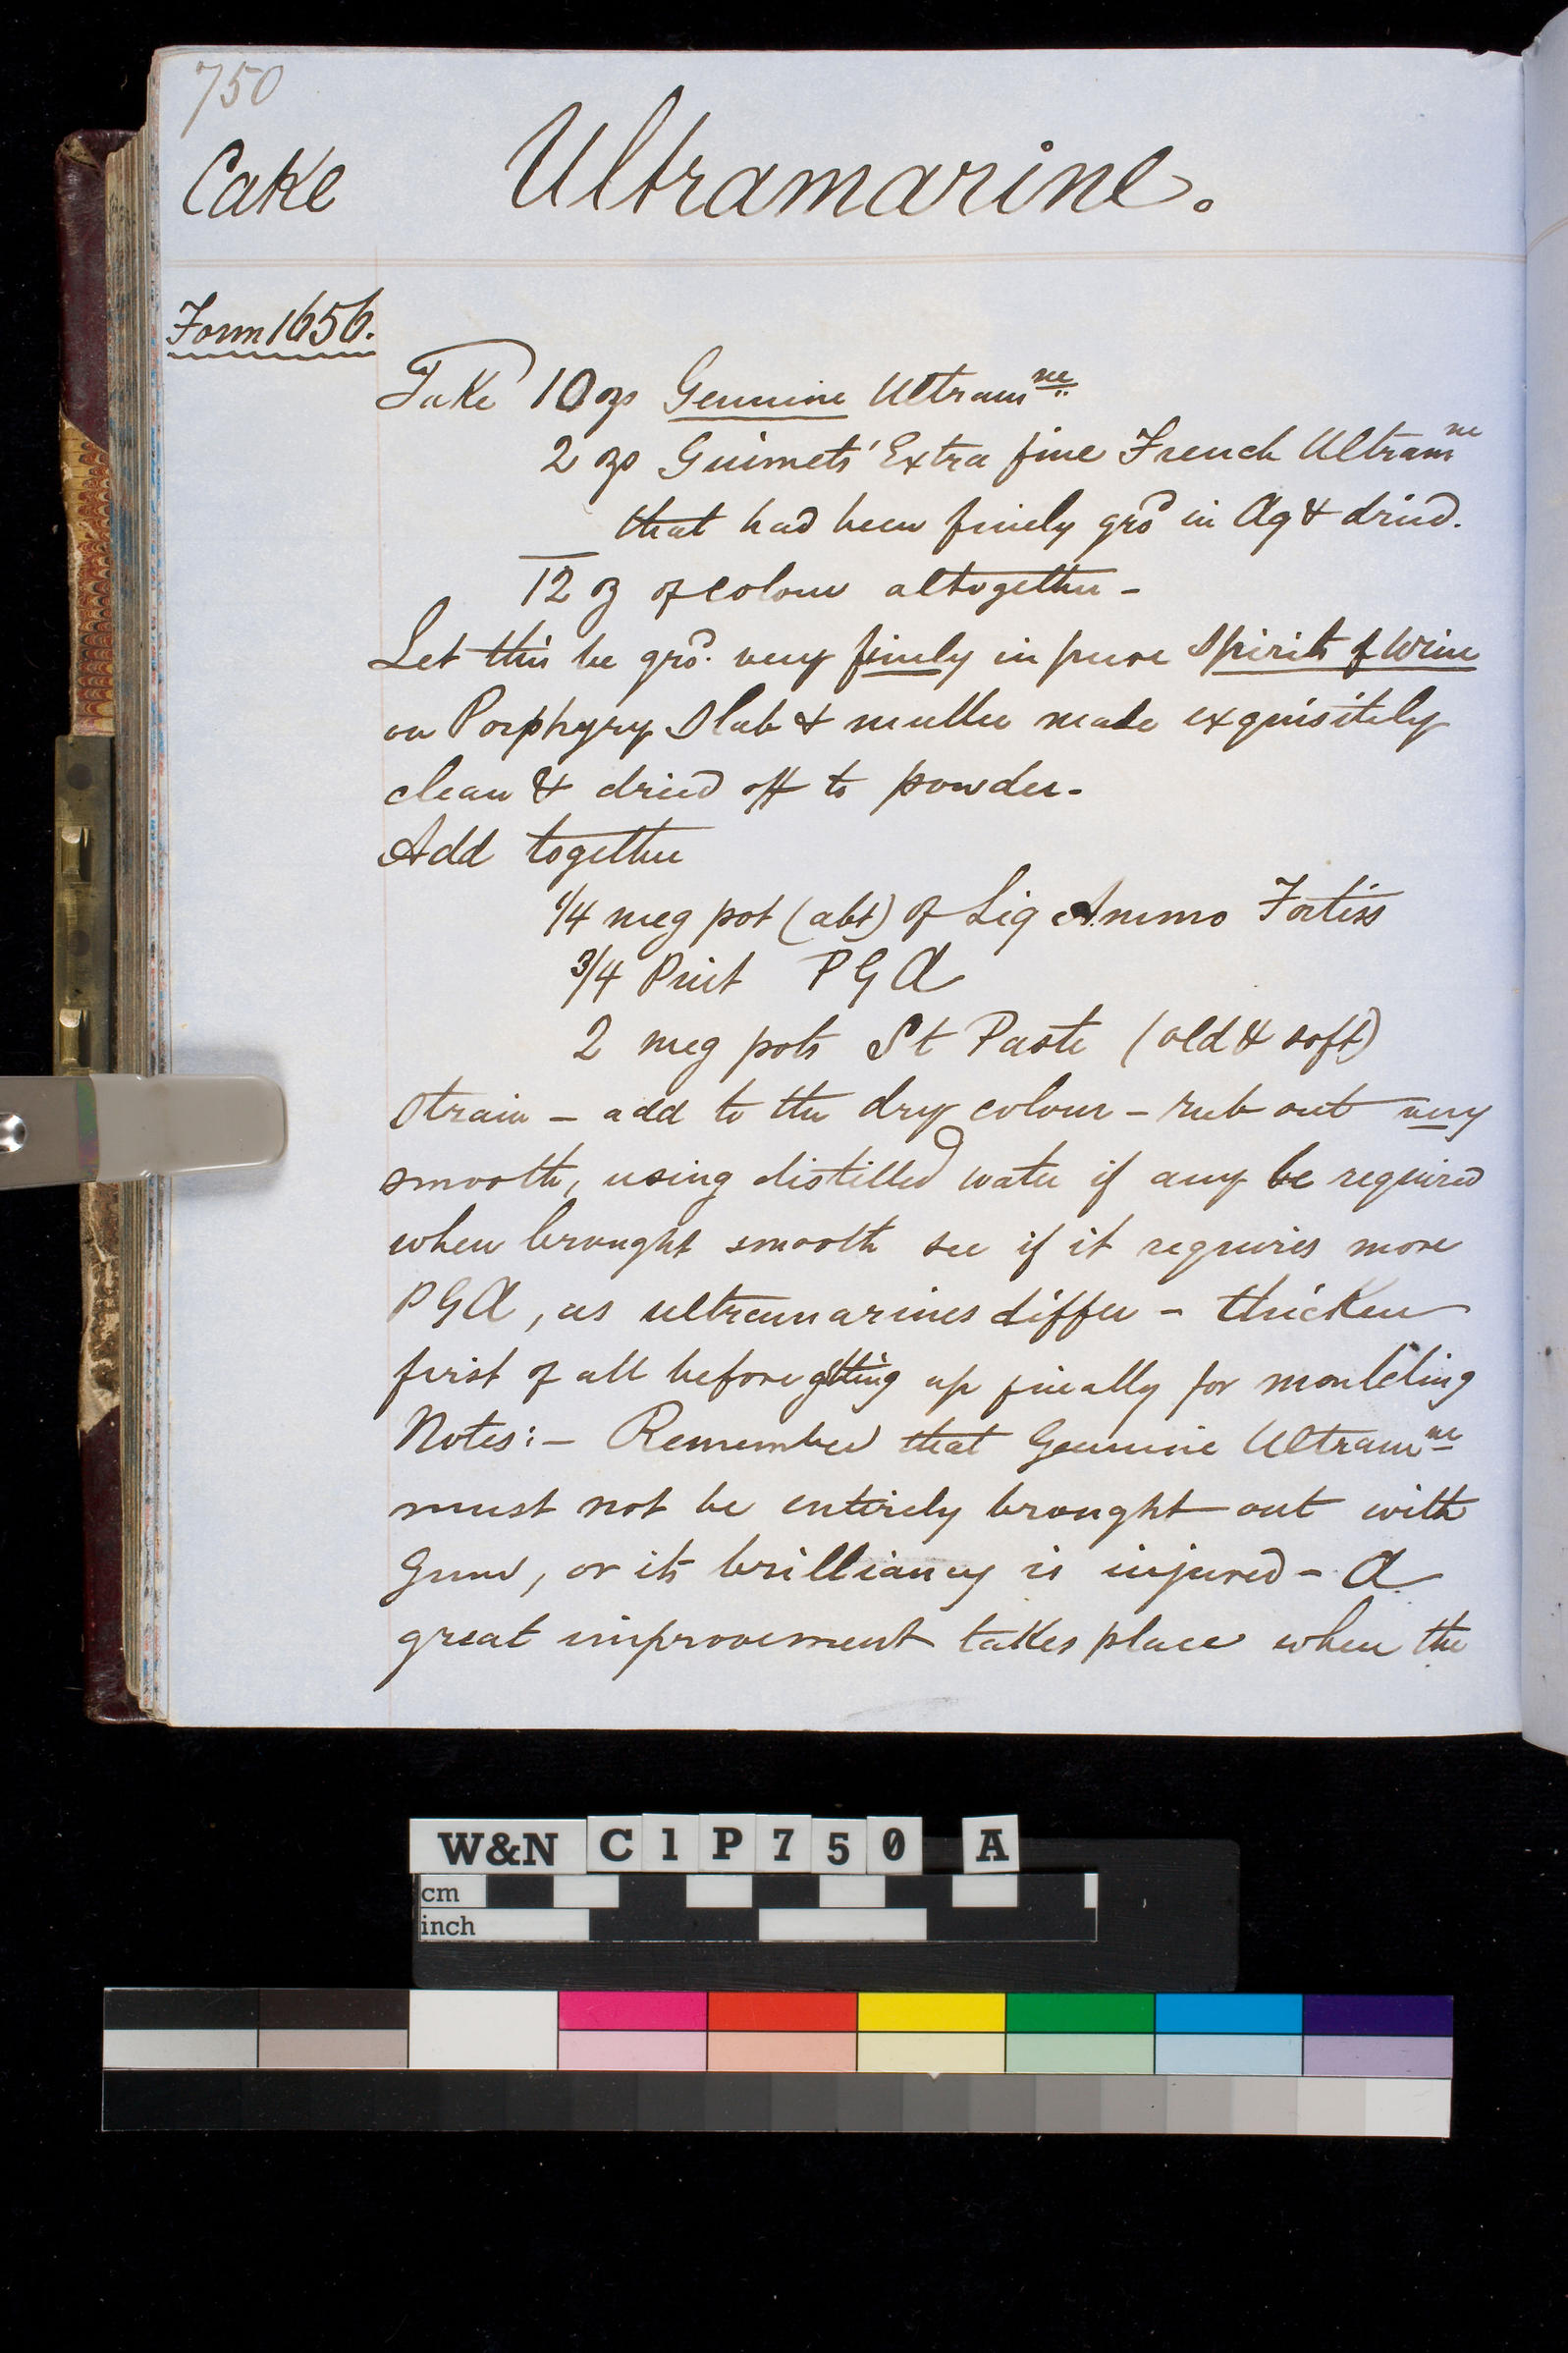 750
Cake Ultramarine.
Form 1656.
Take 10 ozs Genuine Ultramne
2 ozs Guimets' Extra fine French Ultramne
that had been finely grd in Aq & dried.
12 oz of colour altogether -
Let this be grd. very finely in pure Spirits of Wine
on Porphyry Slab & muller made exquisitely
clean & dried off to powder-
Add together
1/4 meg pot (abt) of Liq Ammo Fortiss
3/4 Pint P G A
2 meg pots St Paste (old & soft)
Strain - add to the dry colour - rub out very
smooth, using distilled water if any be required
when brought smooth see if it requires more
P G A, as ultramarines differ - thicken
first of all before getting up finally for moulding
Notes:- Remember that Genuine Ultramne
must not be entirely brought out with
Gum, or its brilliancy is injured - A
great improvement takes place when the
W&N C1P750 A
cm
inch